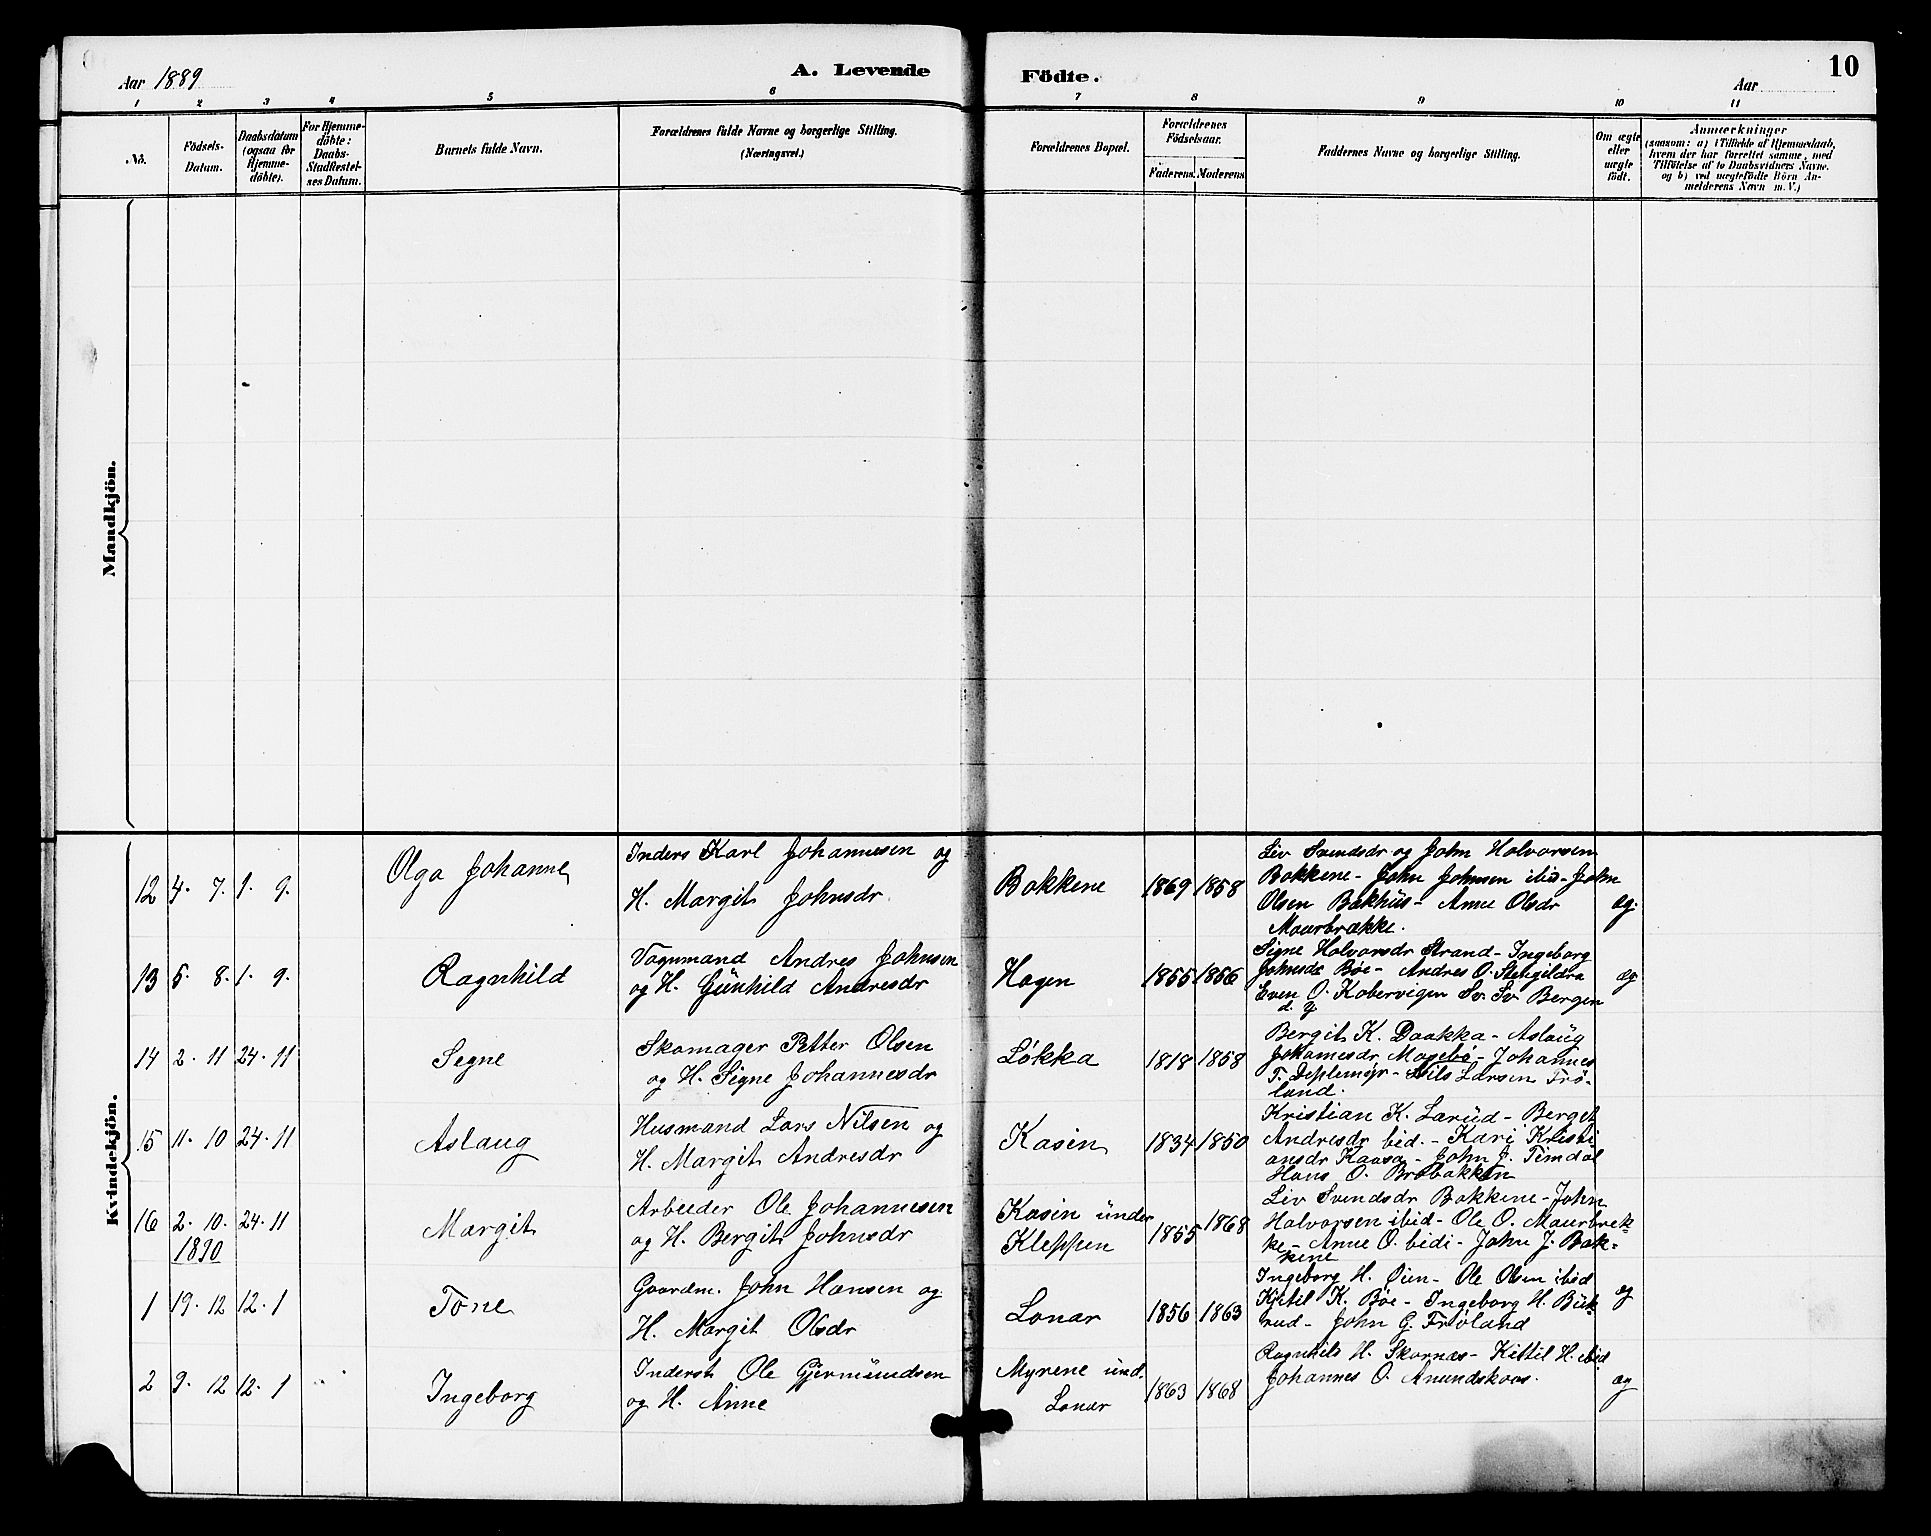 Aar 1889
A. Levende
Födte.
Aar
10
1 2 3 4 5 6 7 8 9 10 11
No.
Födsels-
Datum.
Daabsdatum
(ogsaa for
Hjemme-
döbte).
For Hjemme-
döbte:
Daabs-
Stadfæstel-
ses Datum.
Barnets fulde Navn.
Forældrenes fulde Navne og borgerlige Stilling.
(Næringsvei.)
Forældrenes Bopæl.
Forældrenes
Födselsaar.
Faderens. Moderens
Faddernes Navne og borgerlige Stilling.
Om ægte
eller
uægte
födt.
Anmærkninger
(saasom: a) i Tilfælde af Hjemmedaab,
hvem der har forrettet samme, med
Tilföielse af to Daabsvidners Navne.
og b) ved uægtefödte Börn An-
melderens Navn m.V.)
Mandkjön.
Kvindekjön.
12 4. 7. 1. 9.
Olga Johanne
Inders Karl Johannesen og
H. Margit Johnsdr
Bakkene
1869 1858
Liv Svendsdr og John Halvorsen
Bakkene - John Johnsen ibid - John
Olsen Bakhus - Anne Olsdr
Maurbrække.
æg.
13 5. 8. 1. 9.
Ragnhild
Vognmand Andres Johnsen
og H. Gunhild Andresdr
Hagen
1855 1856
Signe Halvorsdr Strand - Ingeborg
Johnsdr Bøe - Andres O. Stengildra
Even O. Kobervigen Sv. Sv. Bergen
d. y
æg
14 2. 11 24. 11
Segne
Skomager Petter Olsen
og H. Signe Johannesdr
Løkka
1818 1858
Bergit K. Daakka - Aslaug
Johannesdr Mogebø - Johannes
Nils Larsen Frø-
land.
15 11. 10 24. 11
Aslaug
Husmand Lars Nilsen og
H. Margit Andresdr
Kasin
1834 1850
Kristian K. Larud - Berget
Andresdr bid. - Kari Kristi
ansdr Kaasa - John J. Timdal
Hans O. Brobakken
16 2. 10. 24. 11
Margit
Arbeider Ole Johannesen
og H. Bergit Johnsdr
Kasin under
Kleppen
1855 1868
Liv Svendsdr Bakkene - John
Halvorsen ibid - Ole O. Maurbræk
ke - Anne O. bidi - John J. Bak-
kene
1890
1 19. 12 12. 1
Tone
Gaardm. John Hansen og
H. Margit Olsdr
Lonar
1856 1863
Ingeborg H. Øien - Ole Olsen ibid
Kjetil K. Bøe - Ingeborg H. Buk-
rud - John G. Frøland
æg
2 9. 12 12. 1
Ingeborg
Inderst Ole Gjermundsen
og H. Anne
Myrene und.
Lonar
1863 1868
Ragnhild H. Skornas - Kittil H. ibid
Johannes O. Amundskaas.
æg